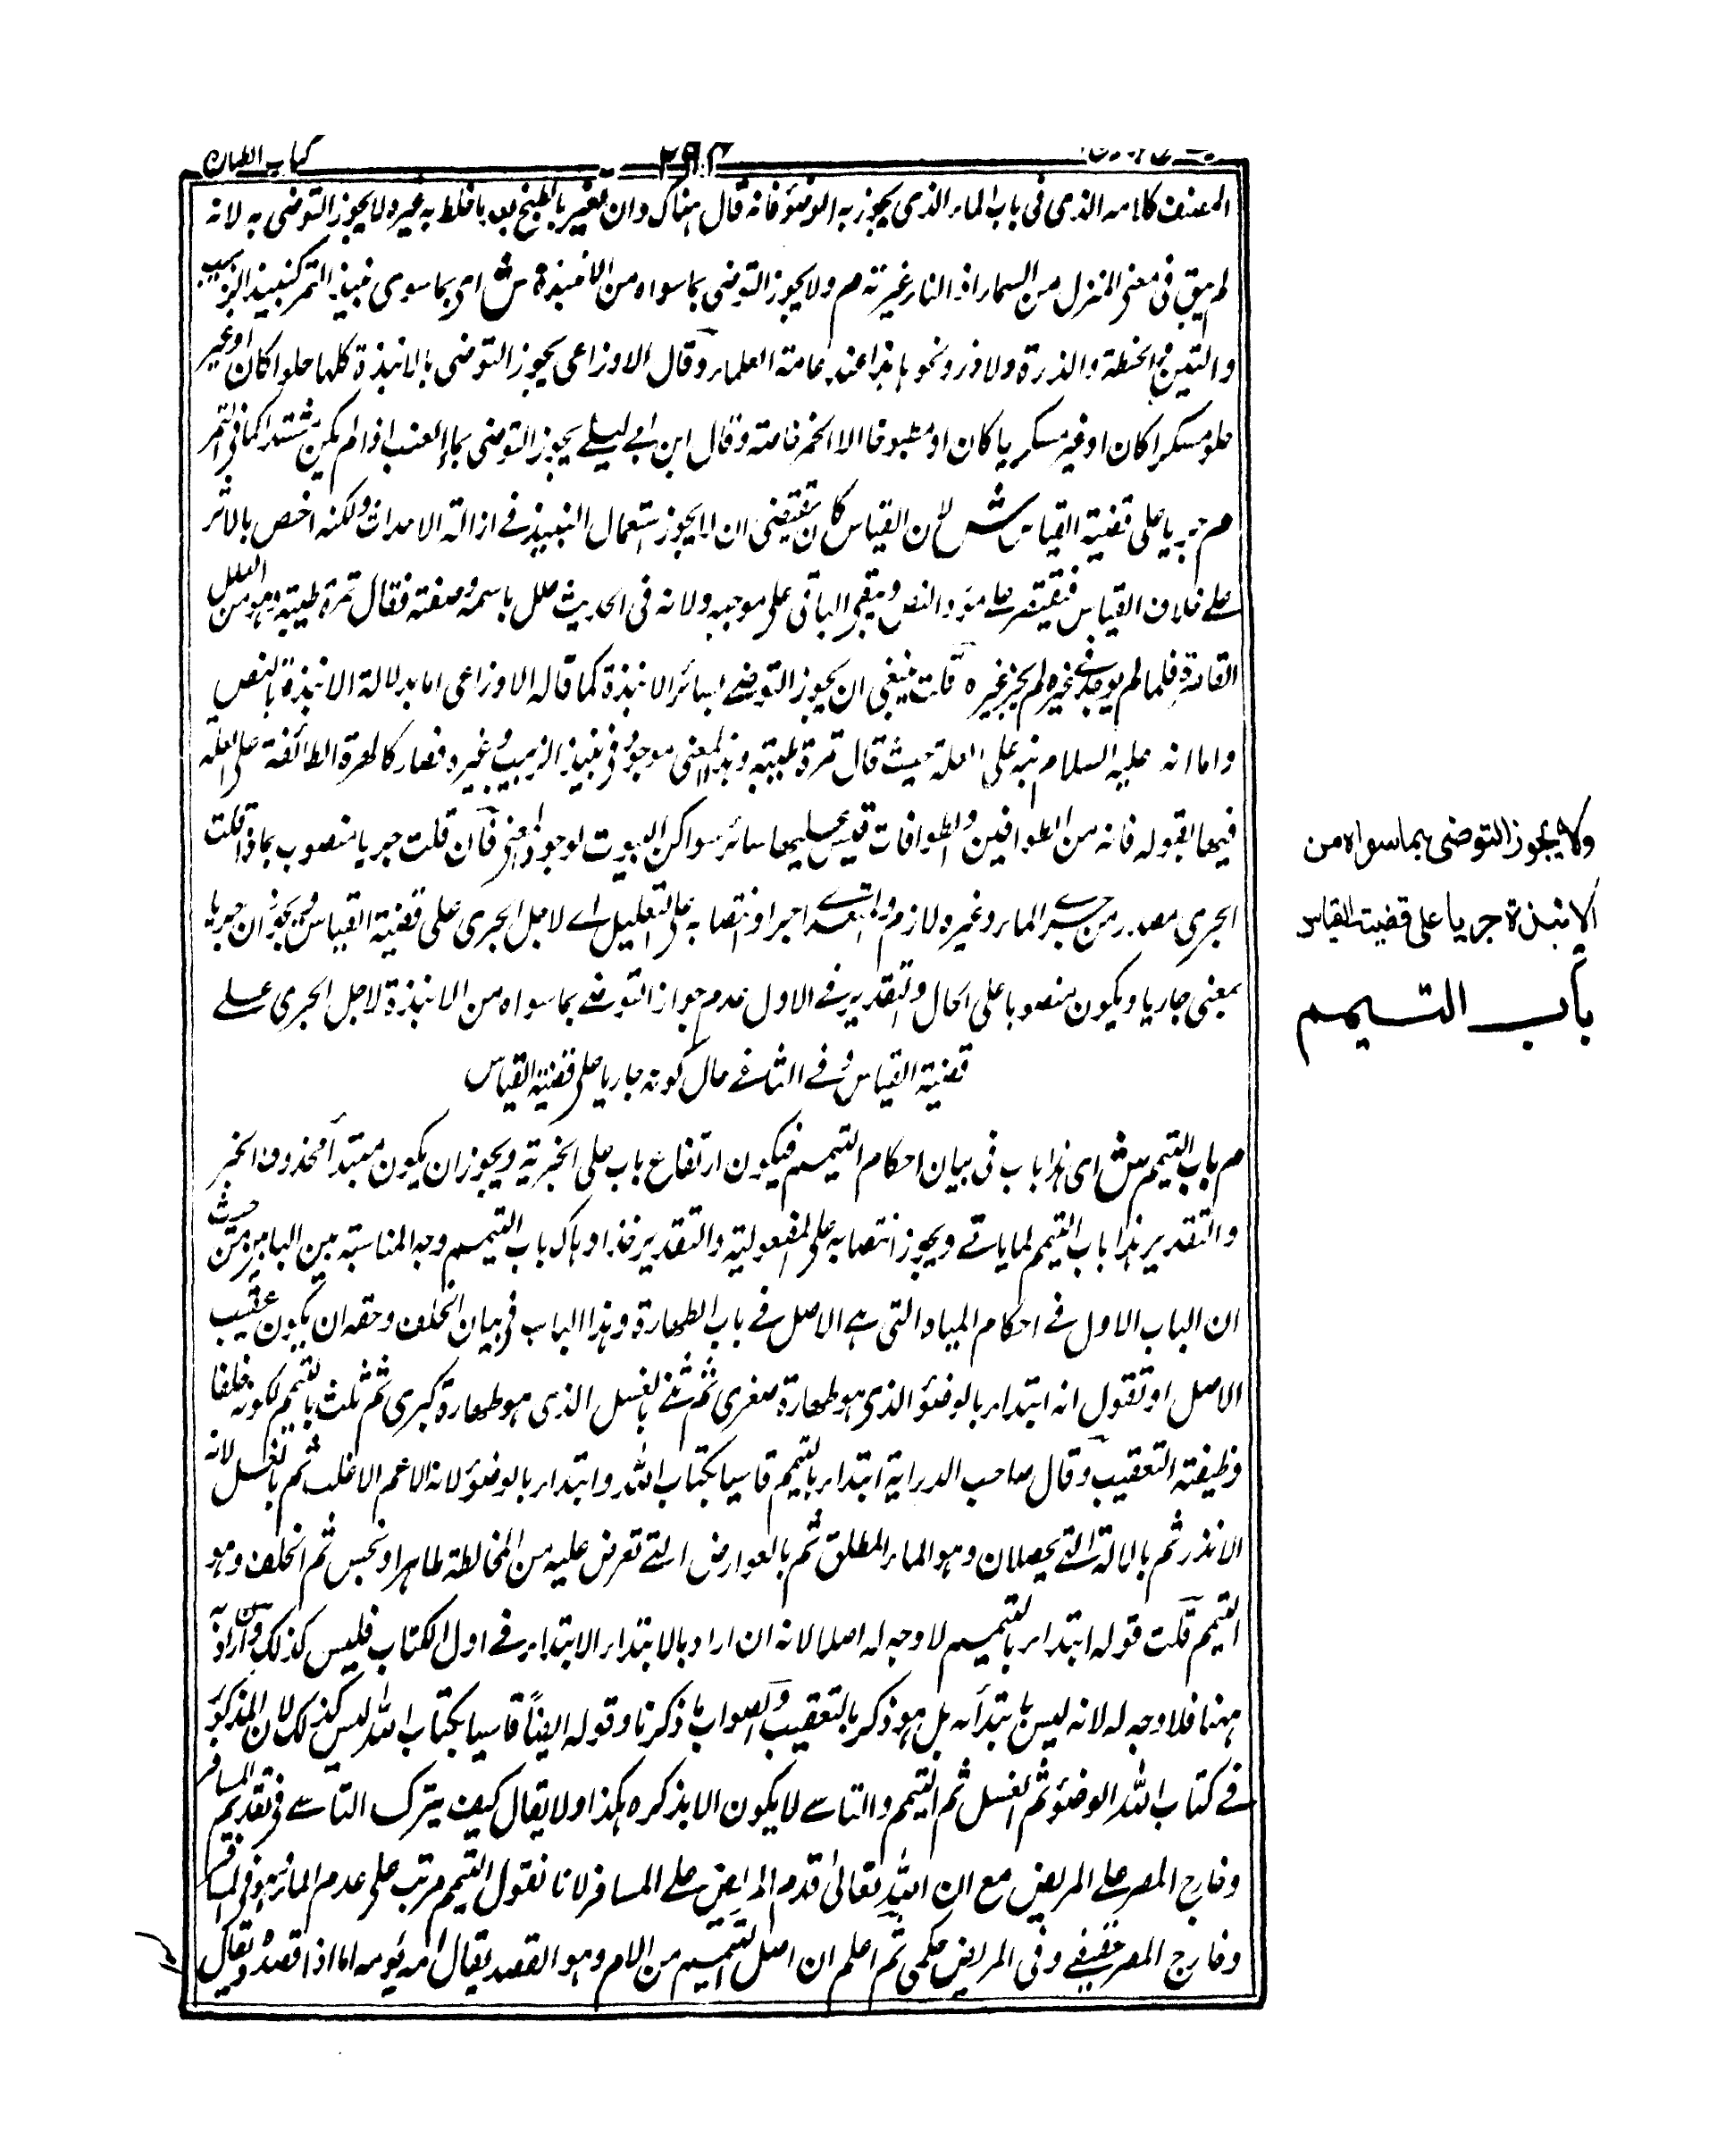 كتاب الطهارة
٢٩٢
المصنف كلامه الذى فى باب الماء الذى يجوز به الوضوء فانه قال هناك وان تغير بالطبخ بعد ما خلط به غيره لا يجوز التوضى به لانه
لم يبق فى معنى المنزل من السماء اذ النار غيرته م ولا يجوز التوضى بما سواه من الانبذة ش اى بما سوى نبيذ التمر كنبيذ الزبيب
والتين والحنطة والذرة والارز ونحوها هذا عند عامة العلماء وقال الاوزاعى يجوز التوضى بالانبذة كلها حلوا كان او غير
حلو مسكرا كان او غير مسكر نيا كان او مطبوخا الا الخمر خاصة وقال ابن ابى ليلى يجوز التوضى بماء العنب اذا لم يكن مشتدا كما فى التمر
م جريا على قضية القياس ش لان القياس كان يقتضى ان لا يجوز استعمال النبيذ فى ازالة الاحداث ولكنه اختص بالاثر
على خلاف القياس فيقتصر على مورد النص ويبقى الباقى على موجبه ولانه فى الحديث علل باسمه وصفته فقال تمرة طيبة وهو من العلل
القاصرة فلما لم يوجد فى غيره لم يجز بغيره قلت ينبغى ان يجوز التوضى بسائر الانبذة كما قاله الاوزاعى اما بدلالة الانبذة بالنص
واما انه عليه السلام نبه على العلة حيث قال تمرة طيبة وهذا المعنى موجود فى نبيذ الزبيب وغيره فصار كالهرة الطائفة على العلة
فيها بقوله فانه من الطوافين والطوافات قيس عليها سائر سواكن البيوت لوجود المعنى فان قلت جريا منصوب بماذا قلت
الجرى مصدر من جرى الماء وغيره لازم والمتعدى اجرا وانتصابه على التعليل اى لاجل الجرى على قضية القياس ويجوز ان جريا
بمعنى جاريا ويكون منصوبا على الحال والتقدير فى الاول عدم جواز التوضى بما سواه من الانبذة لاجل الجرى على
قضية القياس وفى الثانى حال كونه جاريا على قضية القياس
ولا يجوز التوضى بما سواه من
الانبذة جريا على قضية القياس
باب التيمم
م باب التيمم ش اى هذا باب فى بيان احكام التيمم فيكون ارتفاع باب على الخبرية ويجوز ان يكون مبتدأ محذوف الخبر
والتقدير هذا باب التيمم لما ياتى ويجوز انتصابه على المفعولية والتقدير خذ او هاك باب التيمم وجه المناسبة بين البابين من حيث
ان الباب الاول فى احكام المياه التى هى الاصل فى باب الطهارة وهذا الباب فى بيان الخلف وحقه ان يكون عقيب
الاصل او تقول انه ابتداء بالوضوء الذى هو طهارة صغرى ثم ثنى بالغسل الذى هو طهارة كبرى ثم ثلث بالتيمم لكونه خلفا
وظيفته التعقيب وقال صاحب الدراية ابتداء بالتيمم قاسيا بكتاب الله وابتداء بالوضوء لانه الاعم الاغلب ثم بالغسل لانه
الانذر ثم بالالة التى يحصلان وهو الماء المطلق ثم بالعوارض التى تعرض عليه من المخالطة طاهرا ونجس ثم الخلف وهو
التيمم قلت قوله ابتداء بالتيمم لا وجه له اصلا لانه ان اراد بالابتداء الابتداء فى اول الكتاب فليس كذلك وان اراد به
ههنا فلا وجه له لانه ليس بابتدأ به بل هو ذكر بالتعقيب والصواب ما ذكرنا وقوله ايضاً قاسيا بكتاب الله ليس كذلك لان المذكور
فى كتاب الله الوضوء ثم الغسل ثم التيمم والتاسى لا يكون الا بذكره هكذا ولا يقال كيف يترك التاسى فى تقديم المسافر
وخارج المصر على المريض مع ان الله تعالى قدم المريض على المسافر لانا نقول التيمم مرتب على عدم الماء وهو فى المسافر
وخارج المصر حقيقى وفى المريض حكمى ثم اعلم ان اصل التيمم من الام وهو القصد يقال امه يؤمه اما اذا قصده ويقال